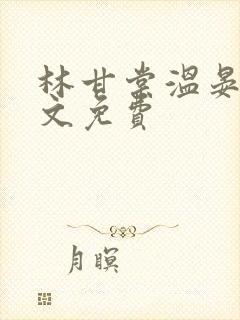 林甘棠温晏
文免费
月暝